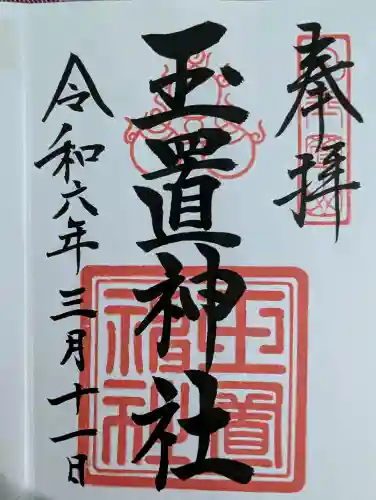 奉拝
玉置神社
令和六年三月十一日
玉置
神社